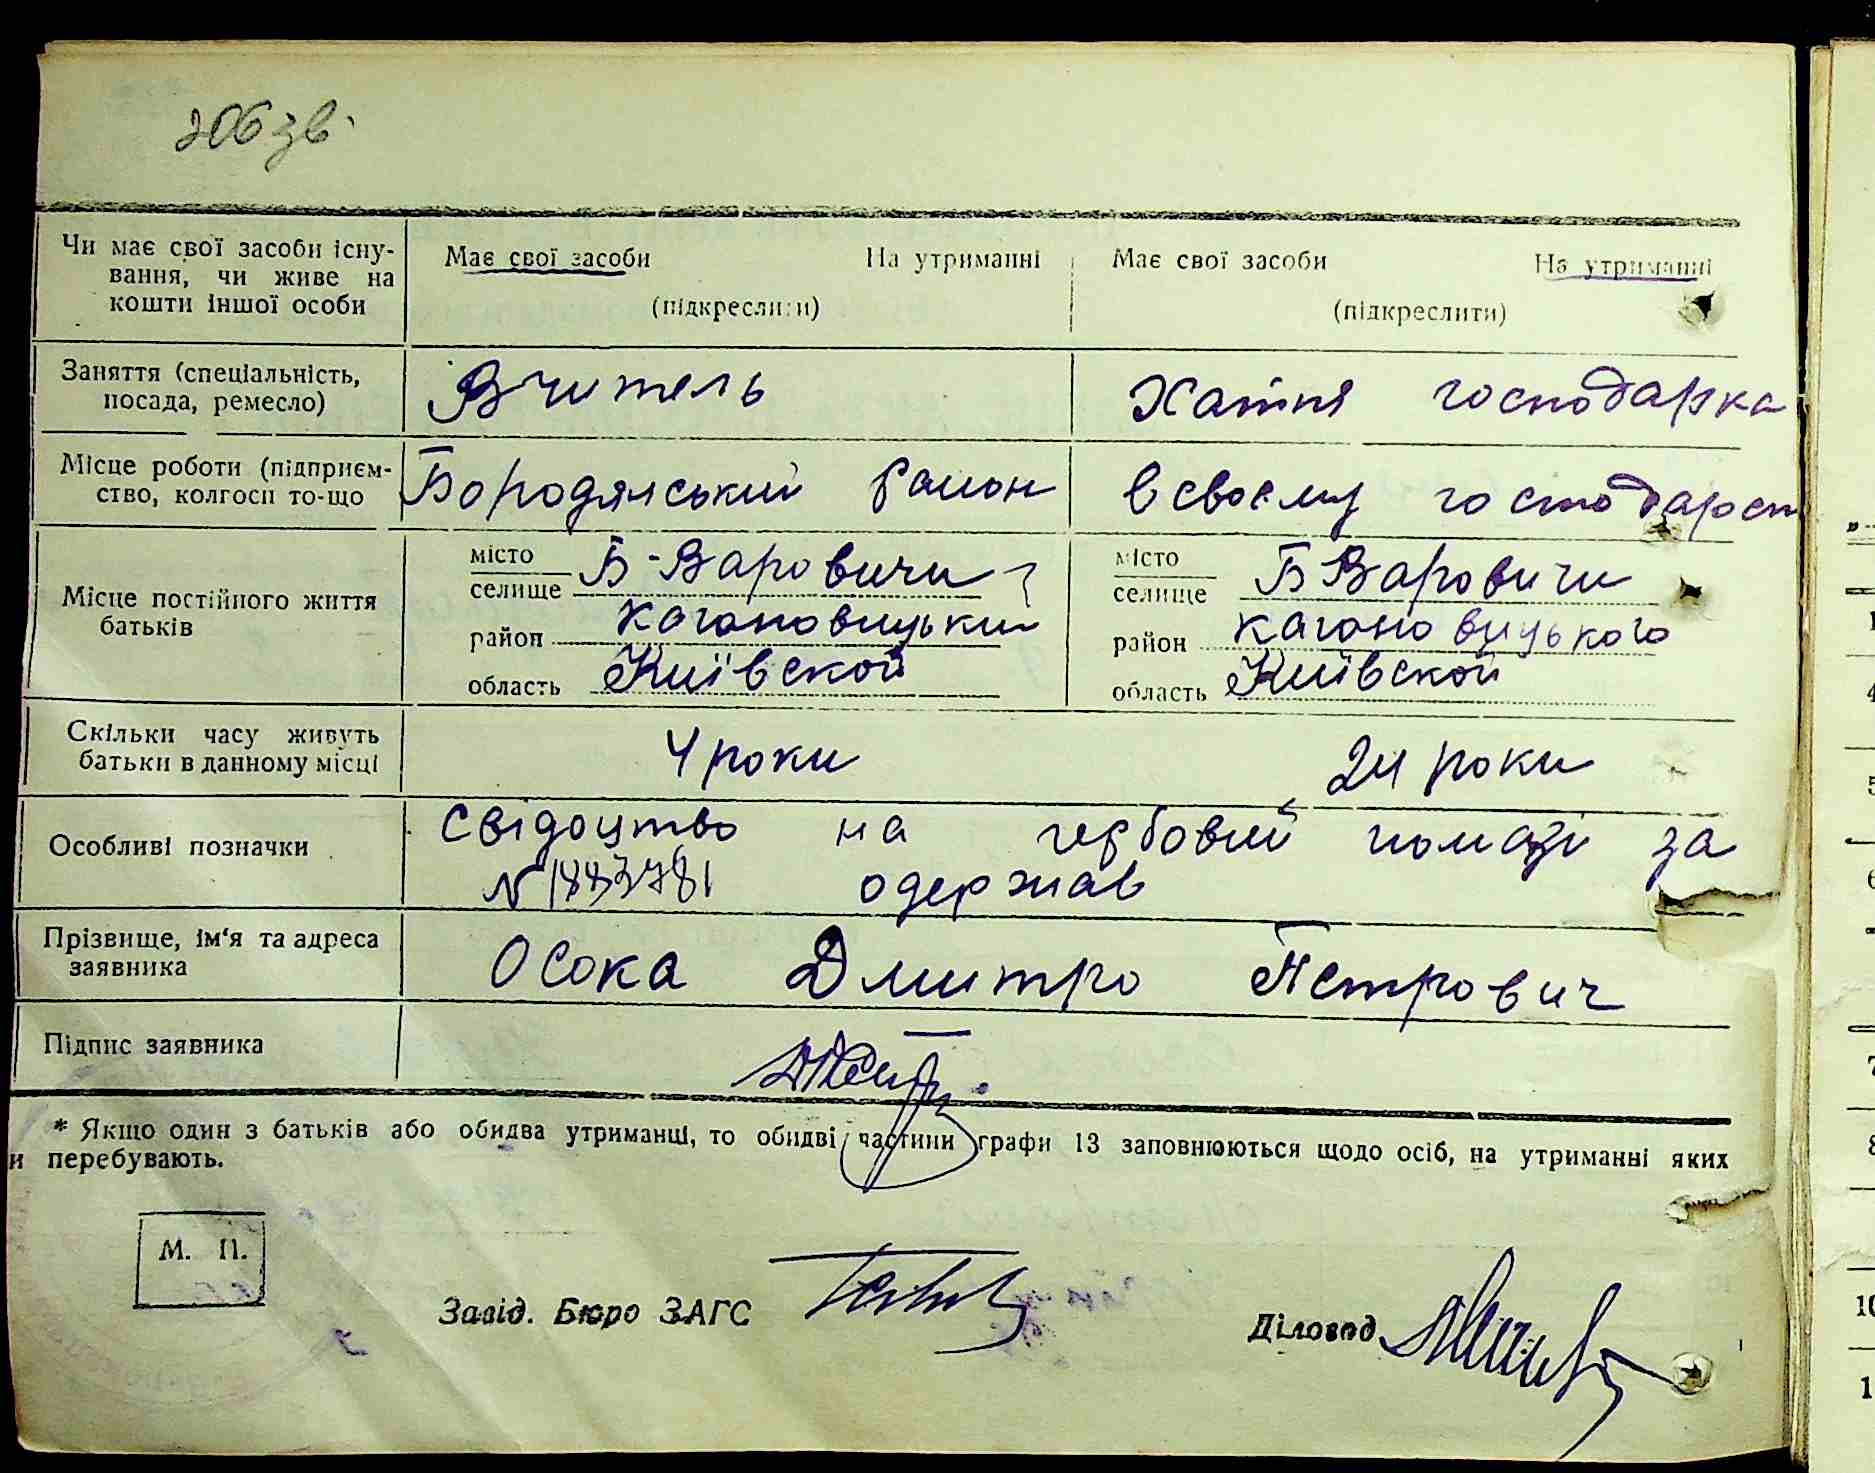 206 зв.
Чи має свої засоби існу-
вання, чи живе на
кошти іншої особи
Має свої засоби На утриманні
(підкреслити)
Має свої засоби На утриманні
(підкреслити)
Заняття (спеціальність,
посада, ремесло)
Вчитель
Хатня господарка
Місце роботи (підприєм-
ство, колгосп то-що
Бородянський район
в своєму господарст
Місце постійного життя
батьків
місто
селище Б-Варовичи
район Кагановицький
область Київской
місто
селище Б Варовичи
район Кагановицького
область Київской
Скільки часу живуть
батьки в данному місці
4 роки
24 роки
Особливі позначки
Свідоцтво на гербовий за
N 1883781 одержав
Прізвище, ім‘я та адреса
заявника
Осока Дмитро Петрович
Підпис заявника
* Якщо один з батьків або обидва утриманці, то обидві частини графи 13 заповнюються щодо осіб, на утриманні яких
и перебувають.
М. П.
Завід. Бюро ЗАГС
Діловод